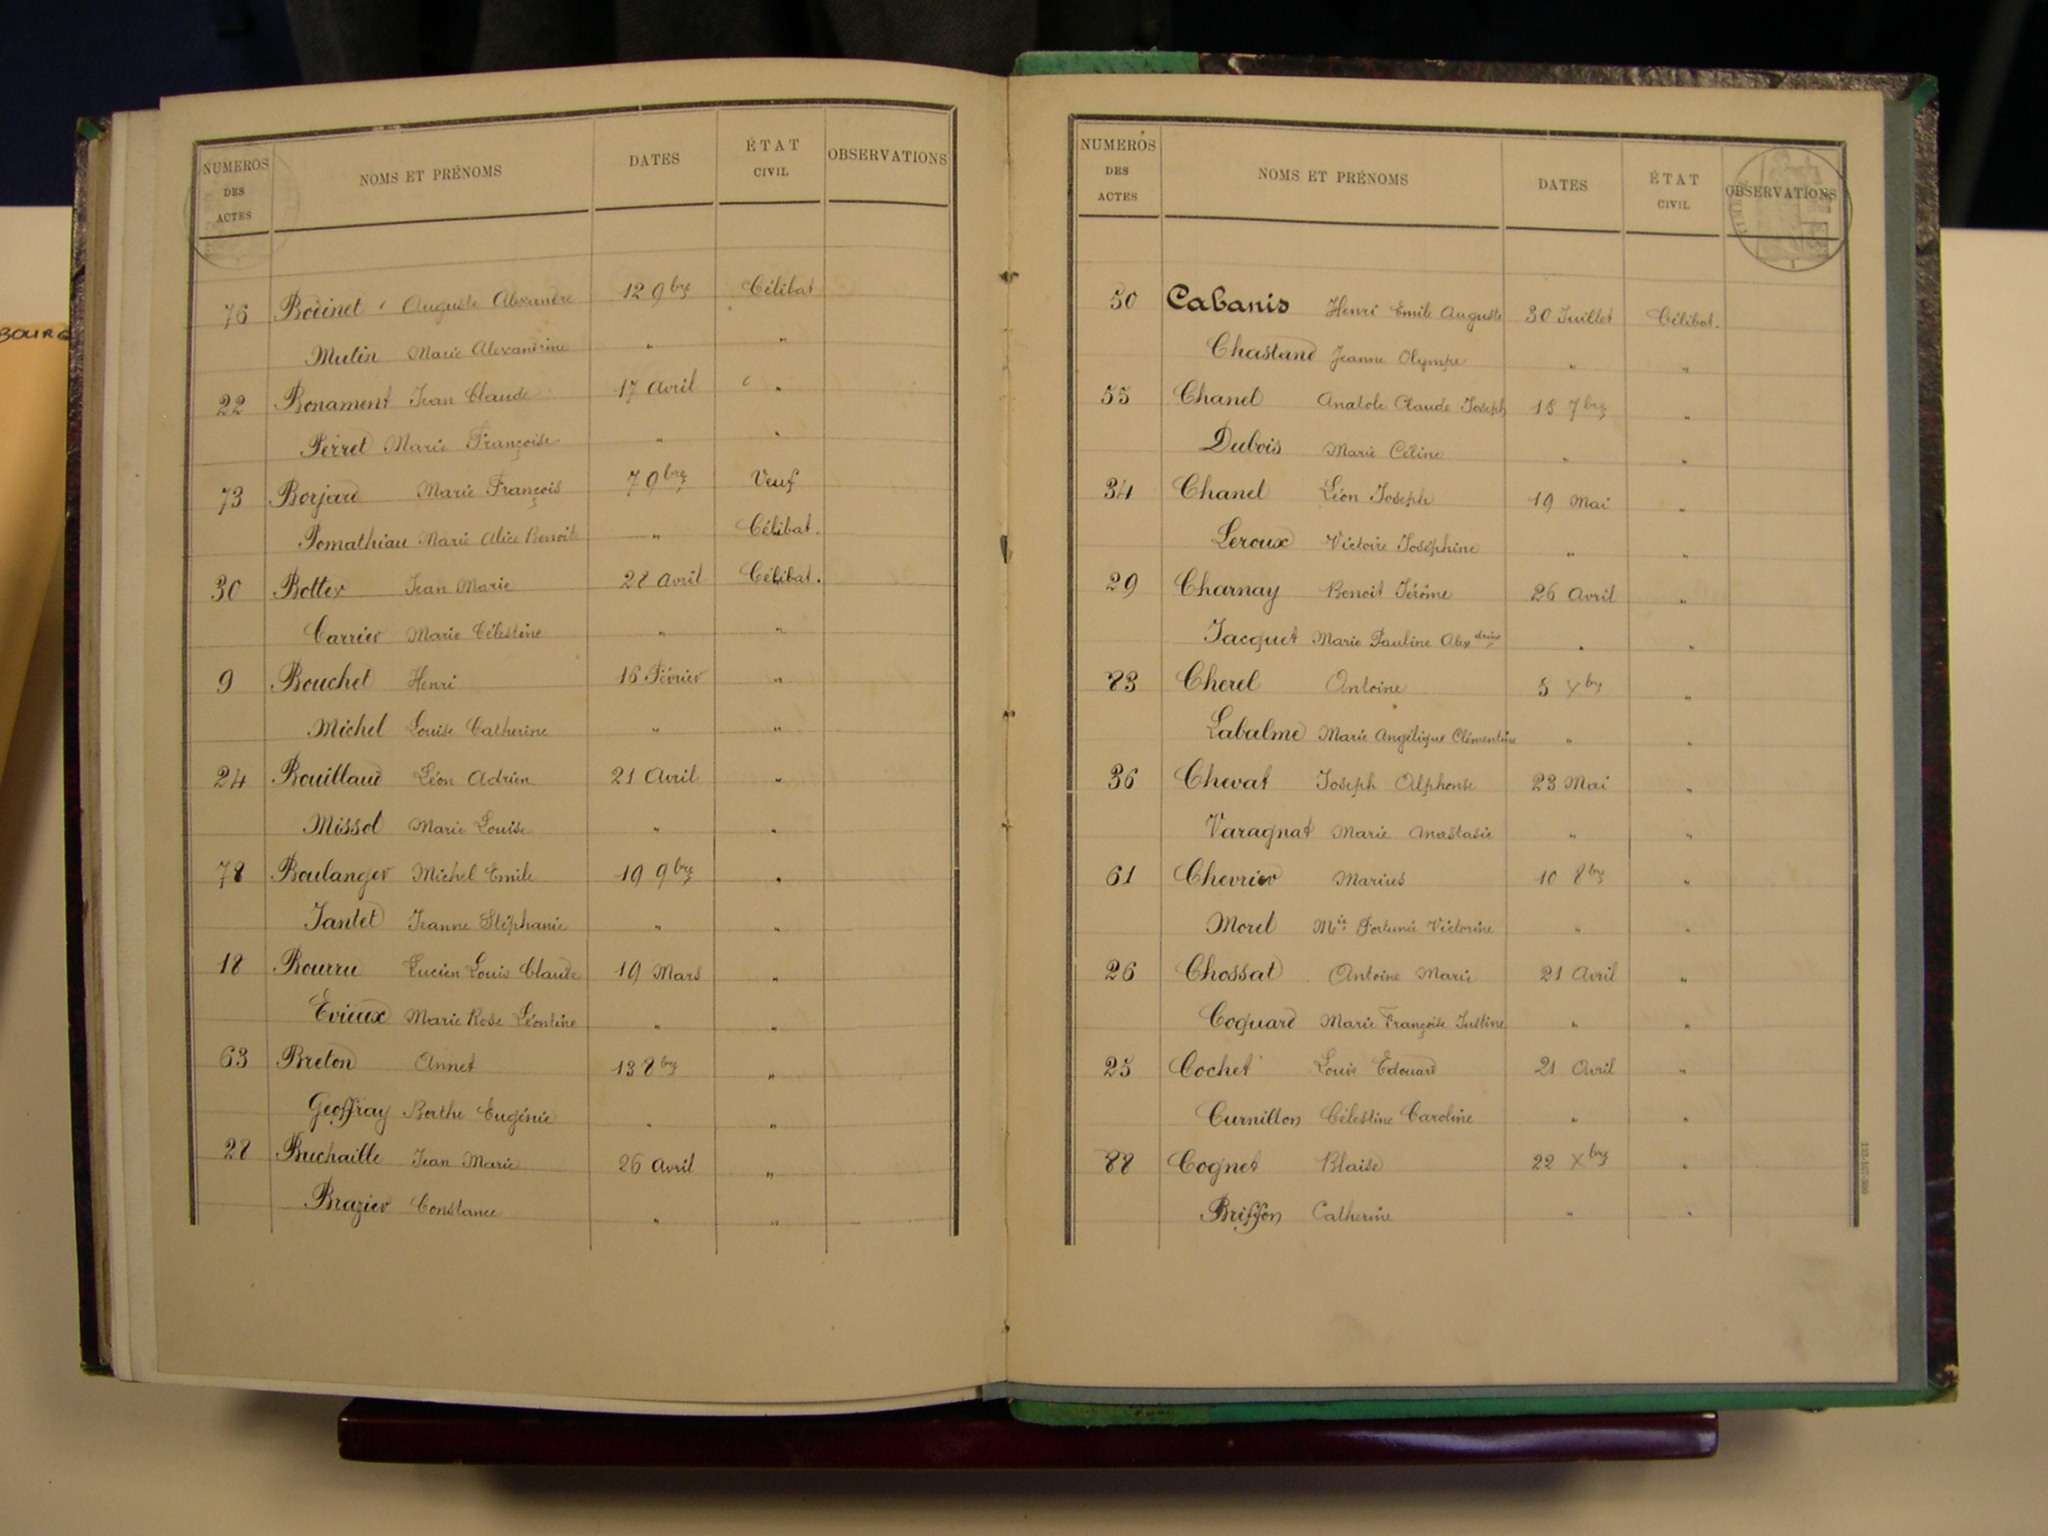 BOURG
NUMEROS DES ACTES NOMS ET PRÉNOMS DATES ÉTAT CIVIL OBSERVATIONS
76 Bodinet Auguste Alexandre 12 9bre Célibat
Mutin Marie Alexandrine " "
22 Bonament Jean Claude 17 Avril "
Perret Marie Françoise " "
73 Borjard Marie François 7 9bre Veuf
Pomathiau Marie Alice Benoite " Célibat.
30 Bottex Jean Marie 28 Avril Célibat.
Carrier Marie Célestine " "
9 Bouchet Henri 16 Février "
Michel Louise Catherine " "
24 Bouillaud Léon Adrien 21 Avril "
Missol Marie Louise " "
78 Boulanger Michel Emile 19 9bre "
Jantet Jeanne Stéphanie " "
18 Bourru Lucien Louis Claude 19 Mars "
Evieux Marie Rose Léontine " "
63 Breton Annet 13 8bre "
Geoffray Berthe Eugénie " "
28 Buchaille Jean Marie 26 Avril "
Brazier Constance " "
NUMEROS DES ACTES NOMS ET PRÉNOMS DATES ÉTAT CIVIL OBSERVATIONS
50 Cabanis Henri Emile Auguste 30 Juillet Célibat.
Chastand Jeanne Olympe " "
55 Chanel Anatole Claude Joseph 15 7bre "
Dubois Marie Céline " "
34 Chanel Léon Joseph 19 Mai "
Leroux Victoire Joséphine " "
29 Charnay Benoit Jérôme 26 Avril "
Jacquet Marie Pauline Alexdrine " "
83 Cherel Antoine 5 Xbre "
Labalme Marie Angélique Clémentine " "
36 Chevat Joseph Alphonse 23 Mai "
Varagnat Marie Anastasie " "
61 Chevrier Marius 10 8bre "
Morel Mie Fortunée Victorine " "
26 Chossat Antoine Marie 21 Avril "
Coquard Marie Françoise Justine " "
25 Cochet Louis Edouard 21 Avril "
Curnillon Célestine Caroline " "
88 Cognet Blaise 22 Xbre "
Briffon Catherine " "